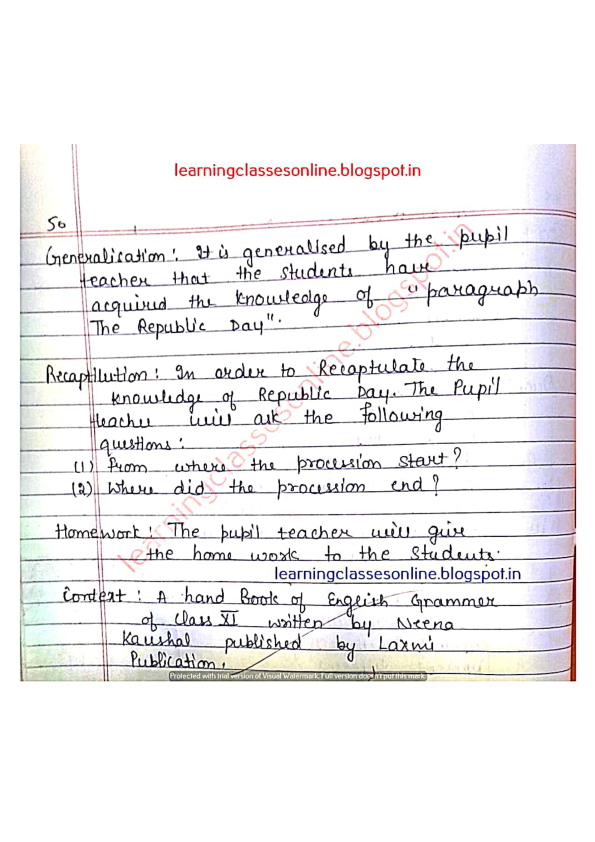 learningclassesonline.blogspot.in
50
Generalisation : It is generalised by the pupil
teacher that the students have
acquired the knowledge of "paragraph
The Republic Day".
Recaptilution : In order to Recaptulate the
knowledge of Republic Day. The Pupil
teacher will ask the following
questions :
(1) From where the procession start ?
(2) Where did the procession end ?
Homework : The pupil teacher will give
the home work to the students.
learningclassesonline.blogspot.in
Context : A hand Book of English Grammer
of class XI written by Neena
Kaushal published by Laxmi
Publication.
learningclassesonline.blogspot.in
Protected with trial version of Visual Watermark. Full version doesn't put this mark.